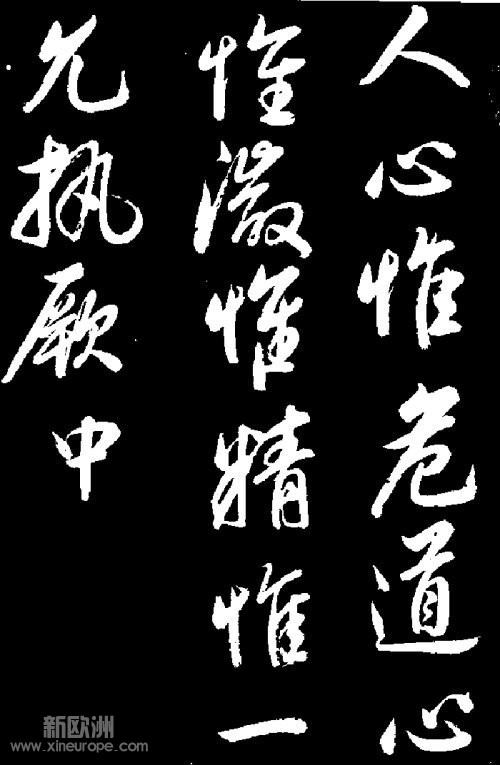 人心惟危道心
惟微惟精惟一
允执厥中
新欧洲
www.xineurope.com